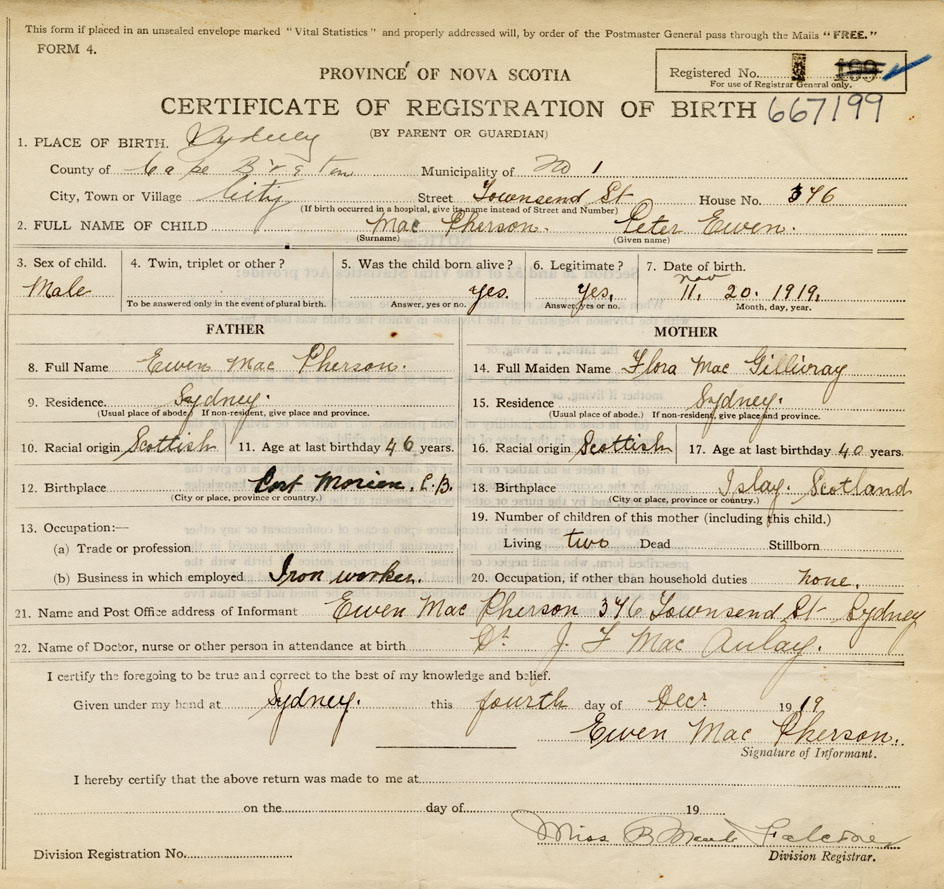 This form if placed in an unsealed envelope marked "Vital Statistics" and properly addressed will, by order of the Postmaster General pass through the Mails "FREE."
FORM 4.
PROVINCE OF NOVA SCOTIA
Registered No. 199
For use of Registrar General only.
CERTIFICATE OF REGISTRATION OF BIRTH 667199
(BY PARENT OR GUARDIAN)
1. PLACE OF BIRTH. Sydney
County of Cape Breton Municipality of No 1
City, Town or Village City Street Townsend St House No. 346
(If birth occurred in a hospital, give its name instead of Street and Number)
2. FULL NAME OF CHILD Mac Pherson. Peter Ewen.
(Surname) (Given name)
3. Sex of child. 4. Twin, triplet or other? 5. Was the child born alive? 6. Legitimate? 7. Date of birth.
Nov
Male Yes. Yes. 11. 20. 1919.
To be answered only in the event of plural birth. Answer, yes or no. Answer, yes or no. Month, day, year.
FATHER MOTHER
8. Full Name Ewen Mac Pherson. 14. Full Maiden Name Flora Mac Gillivray
9. Residence. Sydney. 15. Residence Sydney.
(Usual place of abode) If non-resident, give place and province. (Usual place of abode.) If non-resident, give place and province.
10. Racial origin Scottish 11. Age at last birthday 46 years. 16. Racial origin Scottish 17. Age at last birthday 40 years.
12. Birthplace Port Morien. C.B. 18. Birthplace Islay. Scotland
(City or place, province or country.) (City or place, province or country.)
13. Occupation:— 19. Number of children of this mother (including this child.)
(a) Trade or profession Living two Dead Stillborn
(b) Business in which employed Iron worker. 20. Occupation, if other than household duties none.
21. Name and Post Office address of Informant Ewen Mac Pherson 346 Townsend St Sydney
22. Name of Doctor, nurse or other person in attendance at birth Dr. J. F Mac Aulay.
I certify the foregoing to be true and correct to the best of my knowledge and belief.
Given under my hand at Sydney. this fourth day of Decr 1919
Ewen Mac Pherson.
Signature of Informant.
I hereby certify that the above return was made to me at
on the day of 19
Miss B Falconer
Division Registration No. Division Registrar.